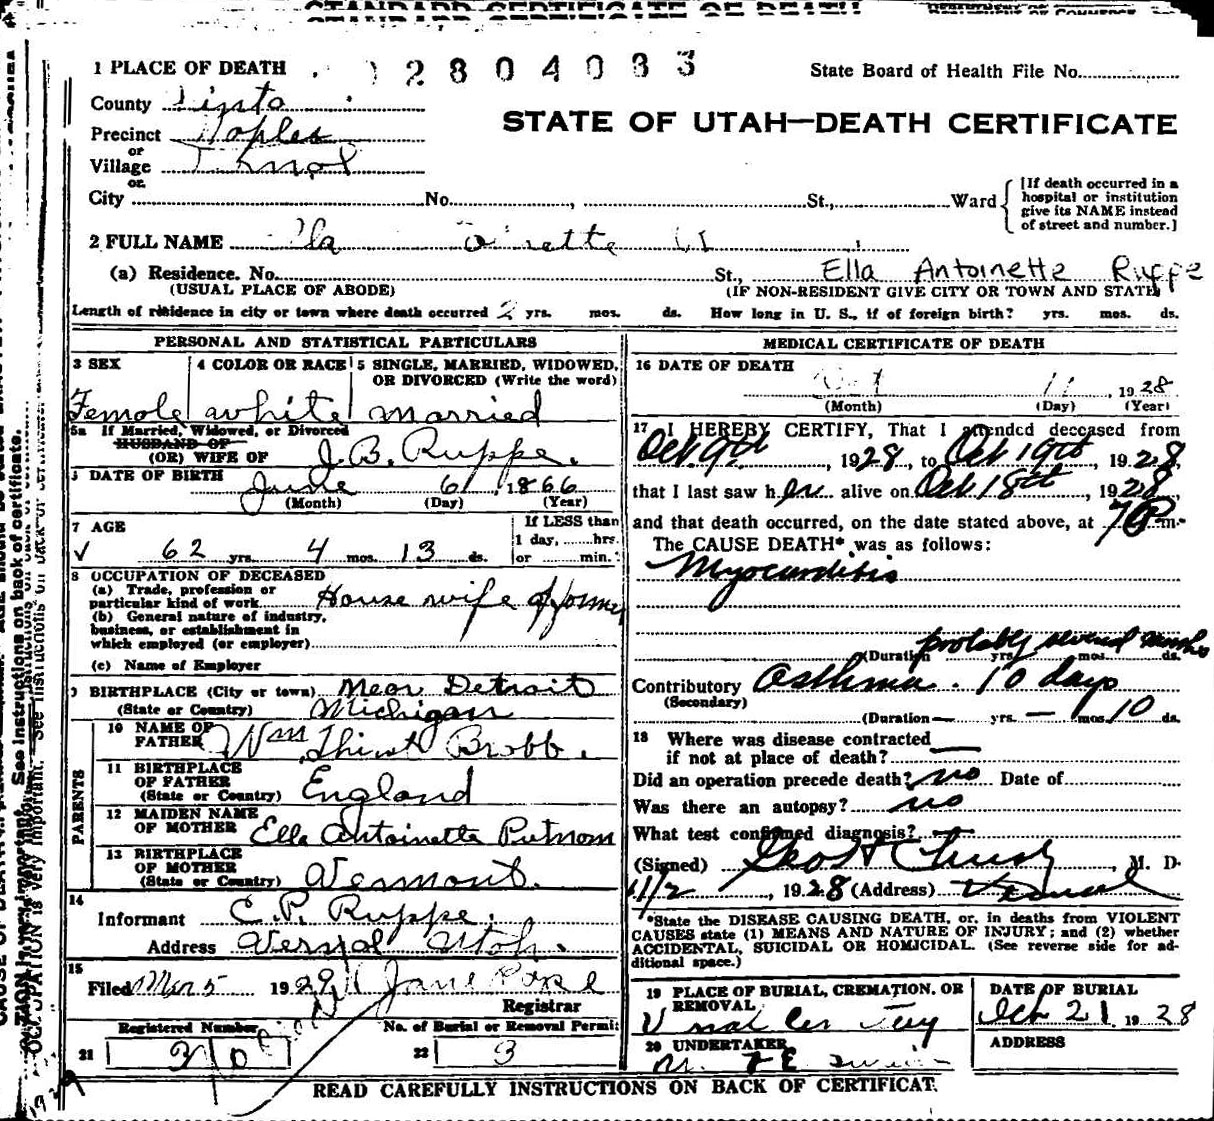 STANDARD CERTIFICATE OF DEATH
1 PLACE OF DEATH
2804083
State Board of Health File No.
County
STATE OF UTAH—DEATH CERTIFICATE
Precinct Naples
or
Village
or
City No. , St., Ward
[If death occurred in a
hospital or institution
give its NAME instead
of street and number.]
2 FULL NAME
(a) Residence. No. St., Ella Antoinette Ruppe
(USUAL PLACE OF ABODE) (IF NON-RESIDENT GIVE CITY OR TOWN AND STATE)
Length of residence in city or town where death occurred 2 yrs. mos. ds. How long in U. S., if of foreign birth? yrs. mos. ds.
PERSONAL AND STATISTICAL PARTICULARS
3 SEX
4 COLOR OR RACE
5 SINGLE, MARRIED, WIDOWED,
OR DIVORCED (Write the word)
Female white married
5a If Married, Widowed, or Divorced
HUSBAND OF
(OR) WIFE OF J.B. Ruppe.
DATE OF BIRTH June 6, 1866
(Month) (Day) (Year)
7 AGE
If LESS than
1 day, hrs.
or min.
62 yrs. 4 mos. 13 ds.
8 OCCUPATION OF DECEASED
(a) Trade, profession or
particular kind of work House wife
(b) General nature of industry,
business, or establishment in
which employed (or employer)
(c) Name of Employer
9 BIRTHPLACE (City or town) Near Detroit
(State or Country) Michigan
PARENTS
10 NAME OF
FATHER Wm
11 BIRTHPLACE
OF FATHER
(State or Country) England
12 MAIDEN NAME
OF MOTHER Ella Antoinette Putnam
13 BIRTHPLACE
OF MOTHER
(State or Country) Vermont.
14
Informant E.P. Ruppe.
Address Vernal Utah.
15
Filed Mar 5 1929 Jane Pope
Registrar
Registered Number
No. of Burial or Removal Permit
21 30
22 3
MEDICAL CERTIFICATE OF DEATH
16 DATE OF DEATH
Oct 1928
(Month) (Day) (Year)
17 I HEREBY CERTIFY, That I attended deceased from
Oct. 9th, 1928, to Oct 19th, 1928,
that I last saw her alive on Oct. 18th, 1928,
and that death occurred, on the date stated above, at 7 P m.
The CAUSE DEATH* was as follows:
Myocarditis
probably several months
(Duration yrs. mos. ds.
Contributory Asthma. 10 days
(Secondary)
(Duration — yrs. — mos. 10 ds.
18 Where was disease contracted
if not at place of death?
Did an operation precede death? no Date of
Was there an autopsy? no
What test confirmed diagnosis?
(Signed) , M. D.
11/2, 1928 (Address) Vernal
*State the DISEASE CAUSING DEATH, or, in deaths from VIOLENT
CAUSES state (1) MEANS AND NATURE OF INJURY; and (2) whether
ACCIDENTAL, SUICIDAL OR HOMICIDAL. (See reverse side for ad-
ditional space.)
19 PLACE OF BURIAL, CREMATION, OR
REMOVAL
DATE OF BURIAL
Oct 21 1928
20 UNDERTAKER
ADDRESS
READ CAREFULLY INSTRUCTIONS ON BACK OF CERTIFICAT.